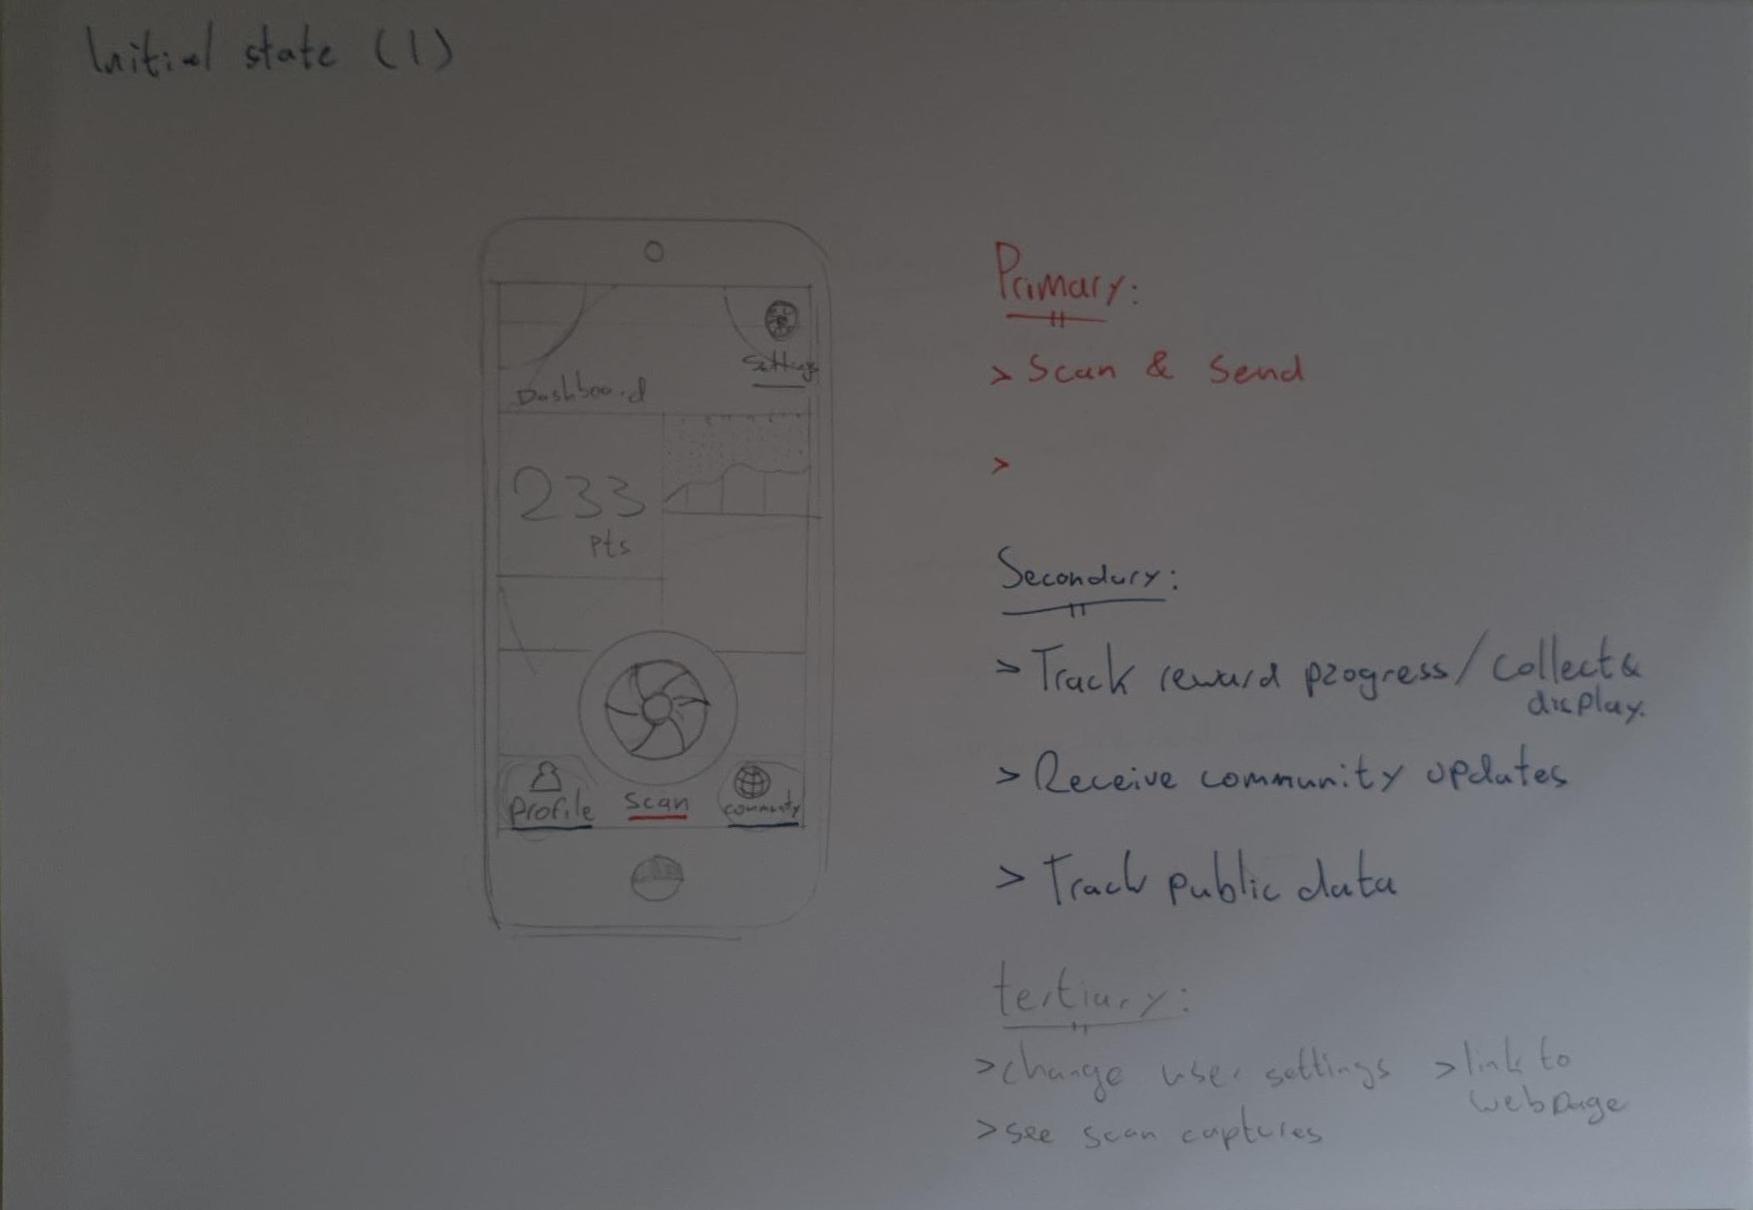 Initial state (1)
Dashboard
Settings
233
Pts
Profile
Scan
community
Primary:
> Scan & Send
>
Secondary:
> Track reward progress / collect &
display.
> Receive community updates
> Track public data
tertiary:
> change user settings > link to
webpage
> see scan captures